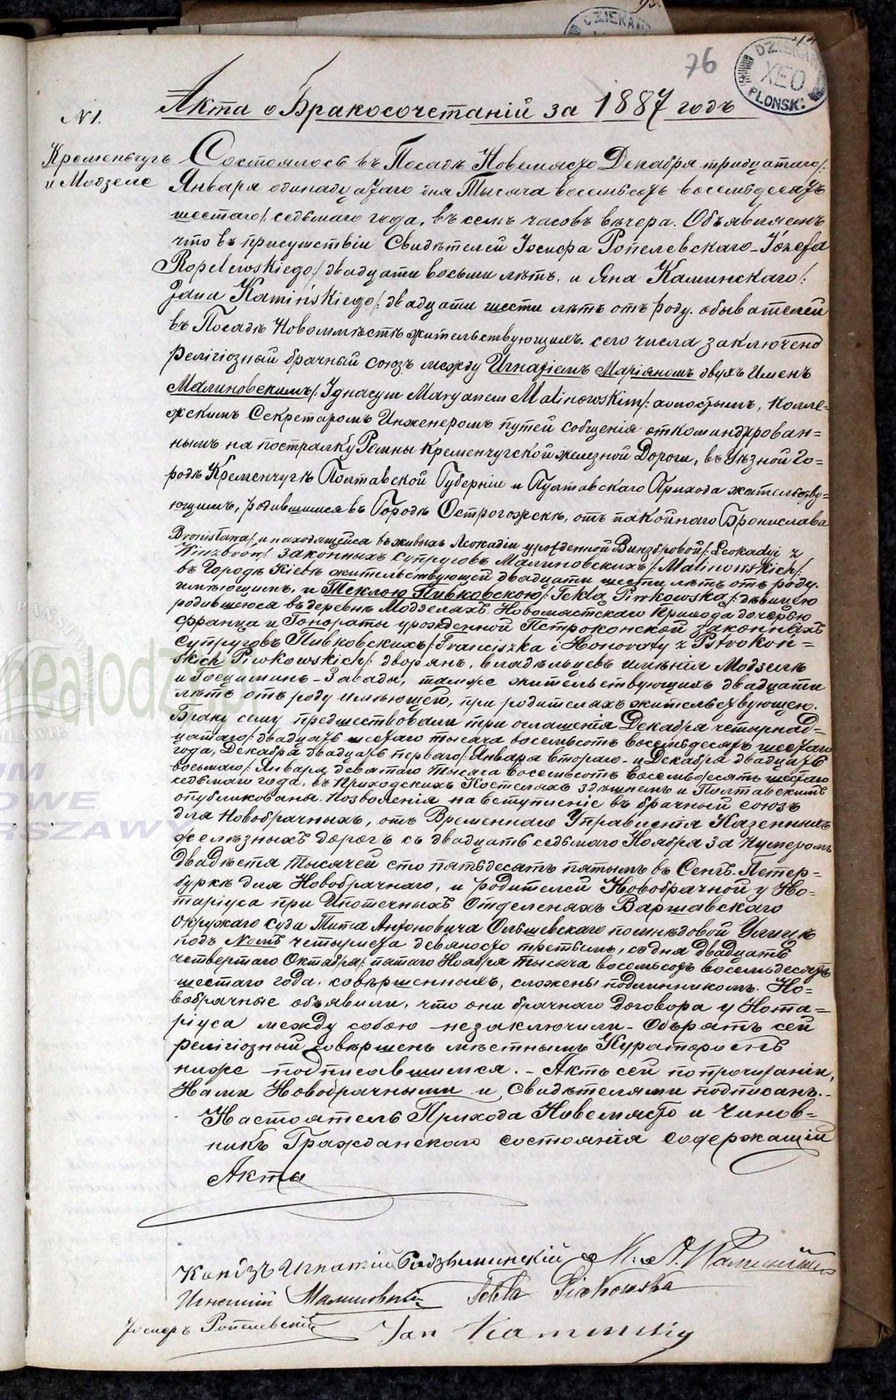 76
DZIEKAN
XEO
PŁOŃSK
№ 1. Акта о Бракосочетаній за 1887 годъ
Кременчугъ
и Модзеле
Состоялось въ Посадѣ Новемясто Декабря тридцатаго/:
Января одинадцатаго дня Тысяча восемьсотъ восемьдесятъ
шестаго/седьмаго года, въ семь часовъ вѣчера. Объявляемъ
что въ присутствіи Свидѣтелей Іосифа Ропелевскаго - Józefa
Ropelewskiego/: двадцати восьми лѣтъ, и Яна Каминскаго/:
Jana Kamińskiego/: двадцати шести лѣтъ отъ роду. обывателей
въ Посадѣ Новоммѣстѣ жительствующихъ. сего числа заключено
религіозный брачный союзъ между Игнатіемъ Маріяномъ двухъ Именъ
Малиновскимъ/: Ignacym Maryanem Malinowskim/: холостымъ, Колле-
жскимъ Секретаромъ Инженеромъ путей собщенія откомандирован=
нымъ на постралку Ромны Кременчугской желѣзной Дороги, въ Уѣзной Го-
родѣ Кременчугѣ Полтавской Губерніи и Полтавскаго Прихода жательству-
ющимъ, родившимся въ Городѣ Острогожскѣ, отъ покойнаго Бронислава
Bronisława/ и находящейся въ живыхъ Леокадіи урожденной Винцбровой/: Leokadyi z
Законныхъ супруговъ Малиновскихъ/: Malinowskich/
въ Городѣ Кіевѣ жительствующей двадцати шести лѣтъ отъ роду.
имѣющимъ, и Теклою Пивковскою/: Tekla Piwkowska/: дѣвицею
родившеюся въ деревнѣ Модзеляхъ Новомястскаго Прихода дочерью
Франца и Гонораты урожденной Петроконской законныхъ
супруговъ Пивковскихъ/: Franciszka i Honoraty z Piotrkoń=
skich Piwkowskich/: дворянъ, владѣльцевъ имѣнія Модзеле
и Госцимин-Завады, тамже жительствующихъ двадцати
лѣтъ отъ роду имѣющею, при родителяхъ жительствующею.
Браку сему предшествовали три оглашенія Декабря четырнад-
цатаго/: двадцать шестаго тысяча восемьсотъ восемьдесятъ шестаго
года, Декабря двадцать перваго/: Января втораго - и Декабря двадцать
восьмаго/: Января девятаго тысяча восемьсотъ восемьдесятъ шестаго
седьмаго года, въ Приходскихъ Костелахъ здѣшнемъ и Полтавскимъ
опубликованы. Позволенія на вступленіе въ брачный союзъ
для Новобрачныхъ, отъ Временнаго Управленія Казенныхъ
желѣзныхъ дорогъ съ двадцать седьмаго Ноября за Нумеромъ
двадцать тысячей сто пятьдесятъ пятымъ въ Сенгъ. Петер-
бургѣ для Новобрачнаго, и родителей Новобрачной у Но-
таріуса при Ипотечныхъ Отделеняхъ Варшавскаго
Окружнаго Суда Тита Антоновича Ольшевскаго по Мѣдовой Улицѣ
подъ №омъ четыреста девяносто третьимъ, съ дня двадцать
четвертаго Октября/: пятаго Ноября тысяча восемьсотъ восемьдесятъ
шестаго года, совершеныхъ, сложены подлинникомъ. Но-
вобрачные объявили, что они брачнаго договора у Нота=
ріуса между собою незаключили. - Обрядъ сей
религіозный совершенъ мѣстнымъ Кураторомъ
ниже подписавшимся. - Актъ сей по прочитаніи,
Нами Новобрачными и Свидѣтелями подписанъ. -
Настоятель Прихода Новемясто и Чинов=
никъ Гражданского состоянія содержащій
Акты
Ксендзъ Игнатій Радзвиминскій
Игнатій Малиновскій Tekla Piwkowska
Іосифъ Ропелевскій Jan Kamiński